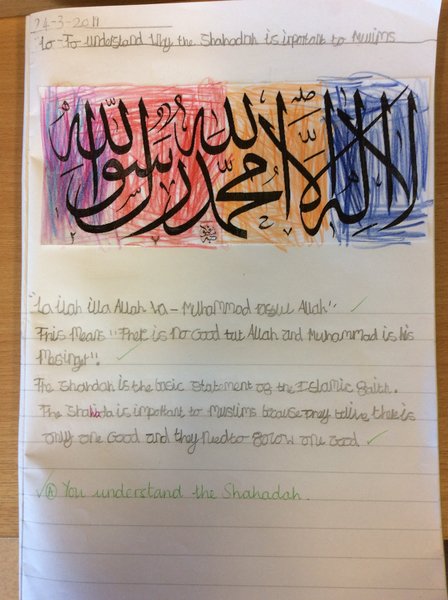 24-3-2011
Lo - To understand Why the Shahadah is inportant to Muslims
لا إله إلا الله محمد رسول الله
"La ilah illa Allah Wa - Muhammad rasul Allah"
This Means "There is No Good but Allah and Muhammad is his
Mesinger".
The Shahdah is the basic statement of the Islamic faith.
The Shahada is inportant to Muslims because they there is
only one Good and they Need to one Good
You understand the Shahadah.